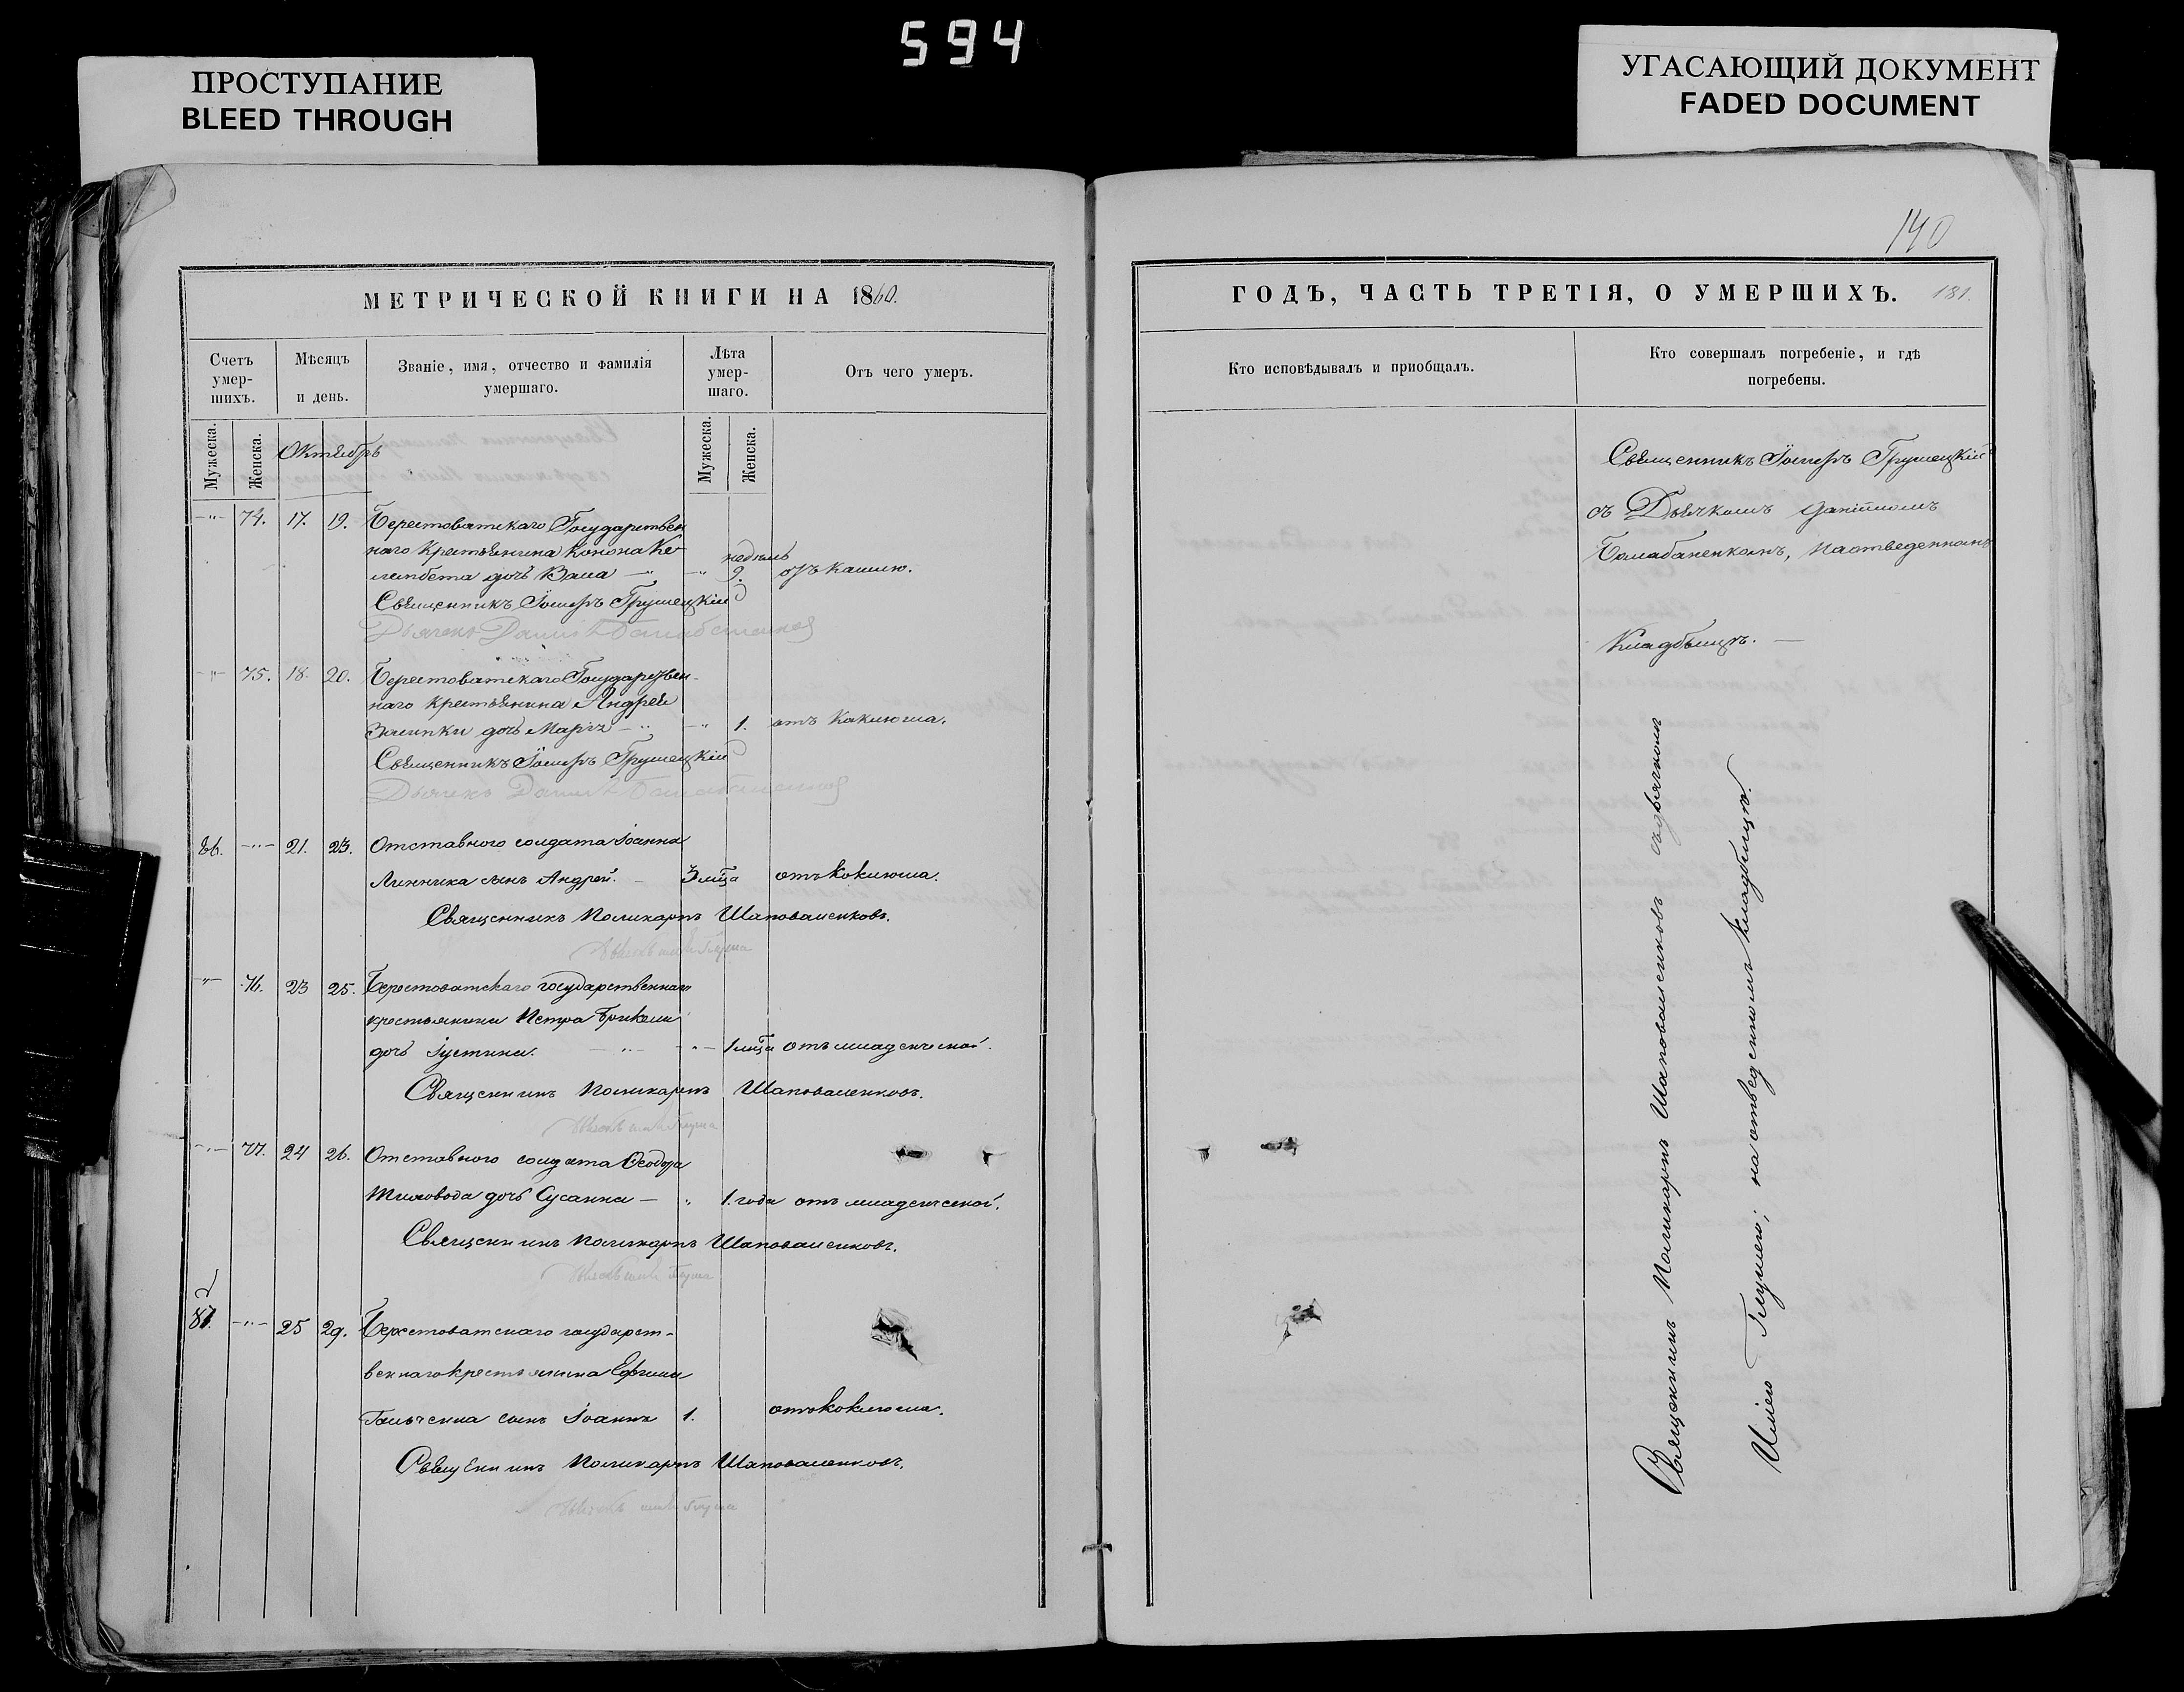 594
ПРОСТУПАНИЕ
BLEED THROUGH
УГАСАЮЩИЙ ДОКУМЕНТ
FADED DOCUMENT
МЕТРИЧЕСКОЙ КНИГИ НА 1860.
Счетъ умер-шихъ.
Мѣсяцъ и день.
Званіе, имя, отчество и фамилія умершаго.
Лѣта умер-шаго.
Отъ чего умеръ.
Мужеска.
Женска.
Октябрь
Мужеска.
Женска.
74. 17. 19. Берестоватскаго Государствен
наго Крестьянина Конона
недѣль
дочь 9. отъ кашлю.
Священникъ Іосифъ Грушецкій
Дьячекъ Даніилъ
75. 18. 20. Берестоватскаго Государствен-
наго Крестьянина Андрея
дочь Марія 1. отъ Каклюша.
Священникъ Іосифъ Грушецкій
Дьячекъ Даніилъ
86. 21. 23. Отставного солдата Іоанна
Линника сынъ Андрей. 3 мца отъ коклюша.
Священникъ Поликарпъ Шаповаленковъ.
76. 23 25. Берестоватскаго государственнаго
крестьянина Петра
дочь Іустина. 1 мца отъ младенческой.
Священникъ Поликарпъ Шаповаленковъ.
77. 24 26. Отставного солдата Ѳеодора
дочь Сусанна 1. года отъ младенческой.
Священникъ Поликарпъ Шаповаленковъ.
87. 25 29. Берестоватскаго государст-
веннаго крестьянина Ефима
сынъ Іоаннъ 1. отъ коклюша.
Священникъ Поликарпъ Шаповаленковъ.
140
ГОДЪ, ЧАСТЬ ТРЕТІЯ, О УМЕРШИХЪ. 181.
Кто исповѣдывалъ и пріобщалъ.
Кто совершалъ погребеніе, и гдѣ погребены.
Священникъ Іосифъ Грушецкій
съ Дьячкомъ Даніиломъ
Балабаненкомъ, на отведенномъ
Кладбыщѣ.
Священникъ Поликарпъ Шаповаленковъ съ дьячкомъ
Иліею Глушею; на отведенномъ кладбищѣ.